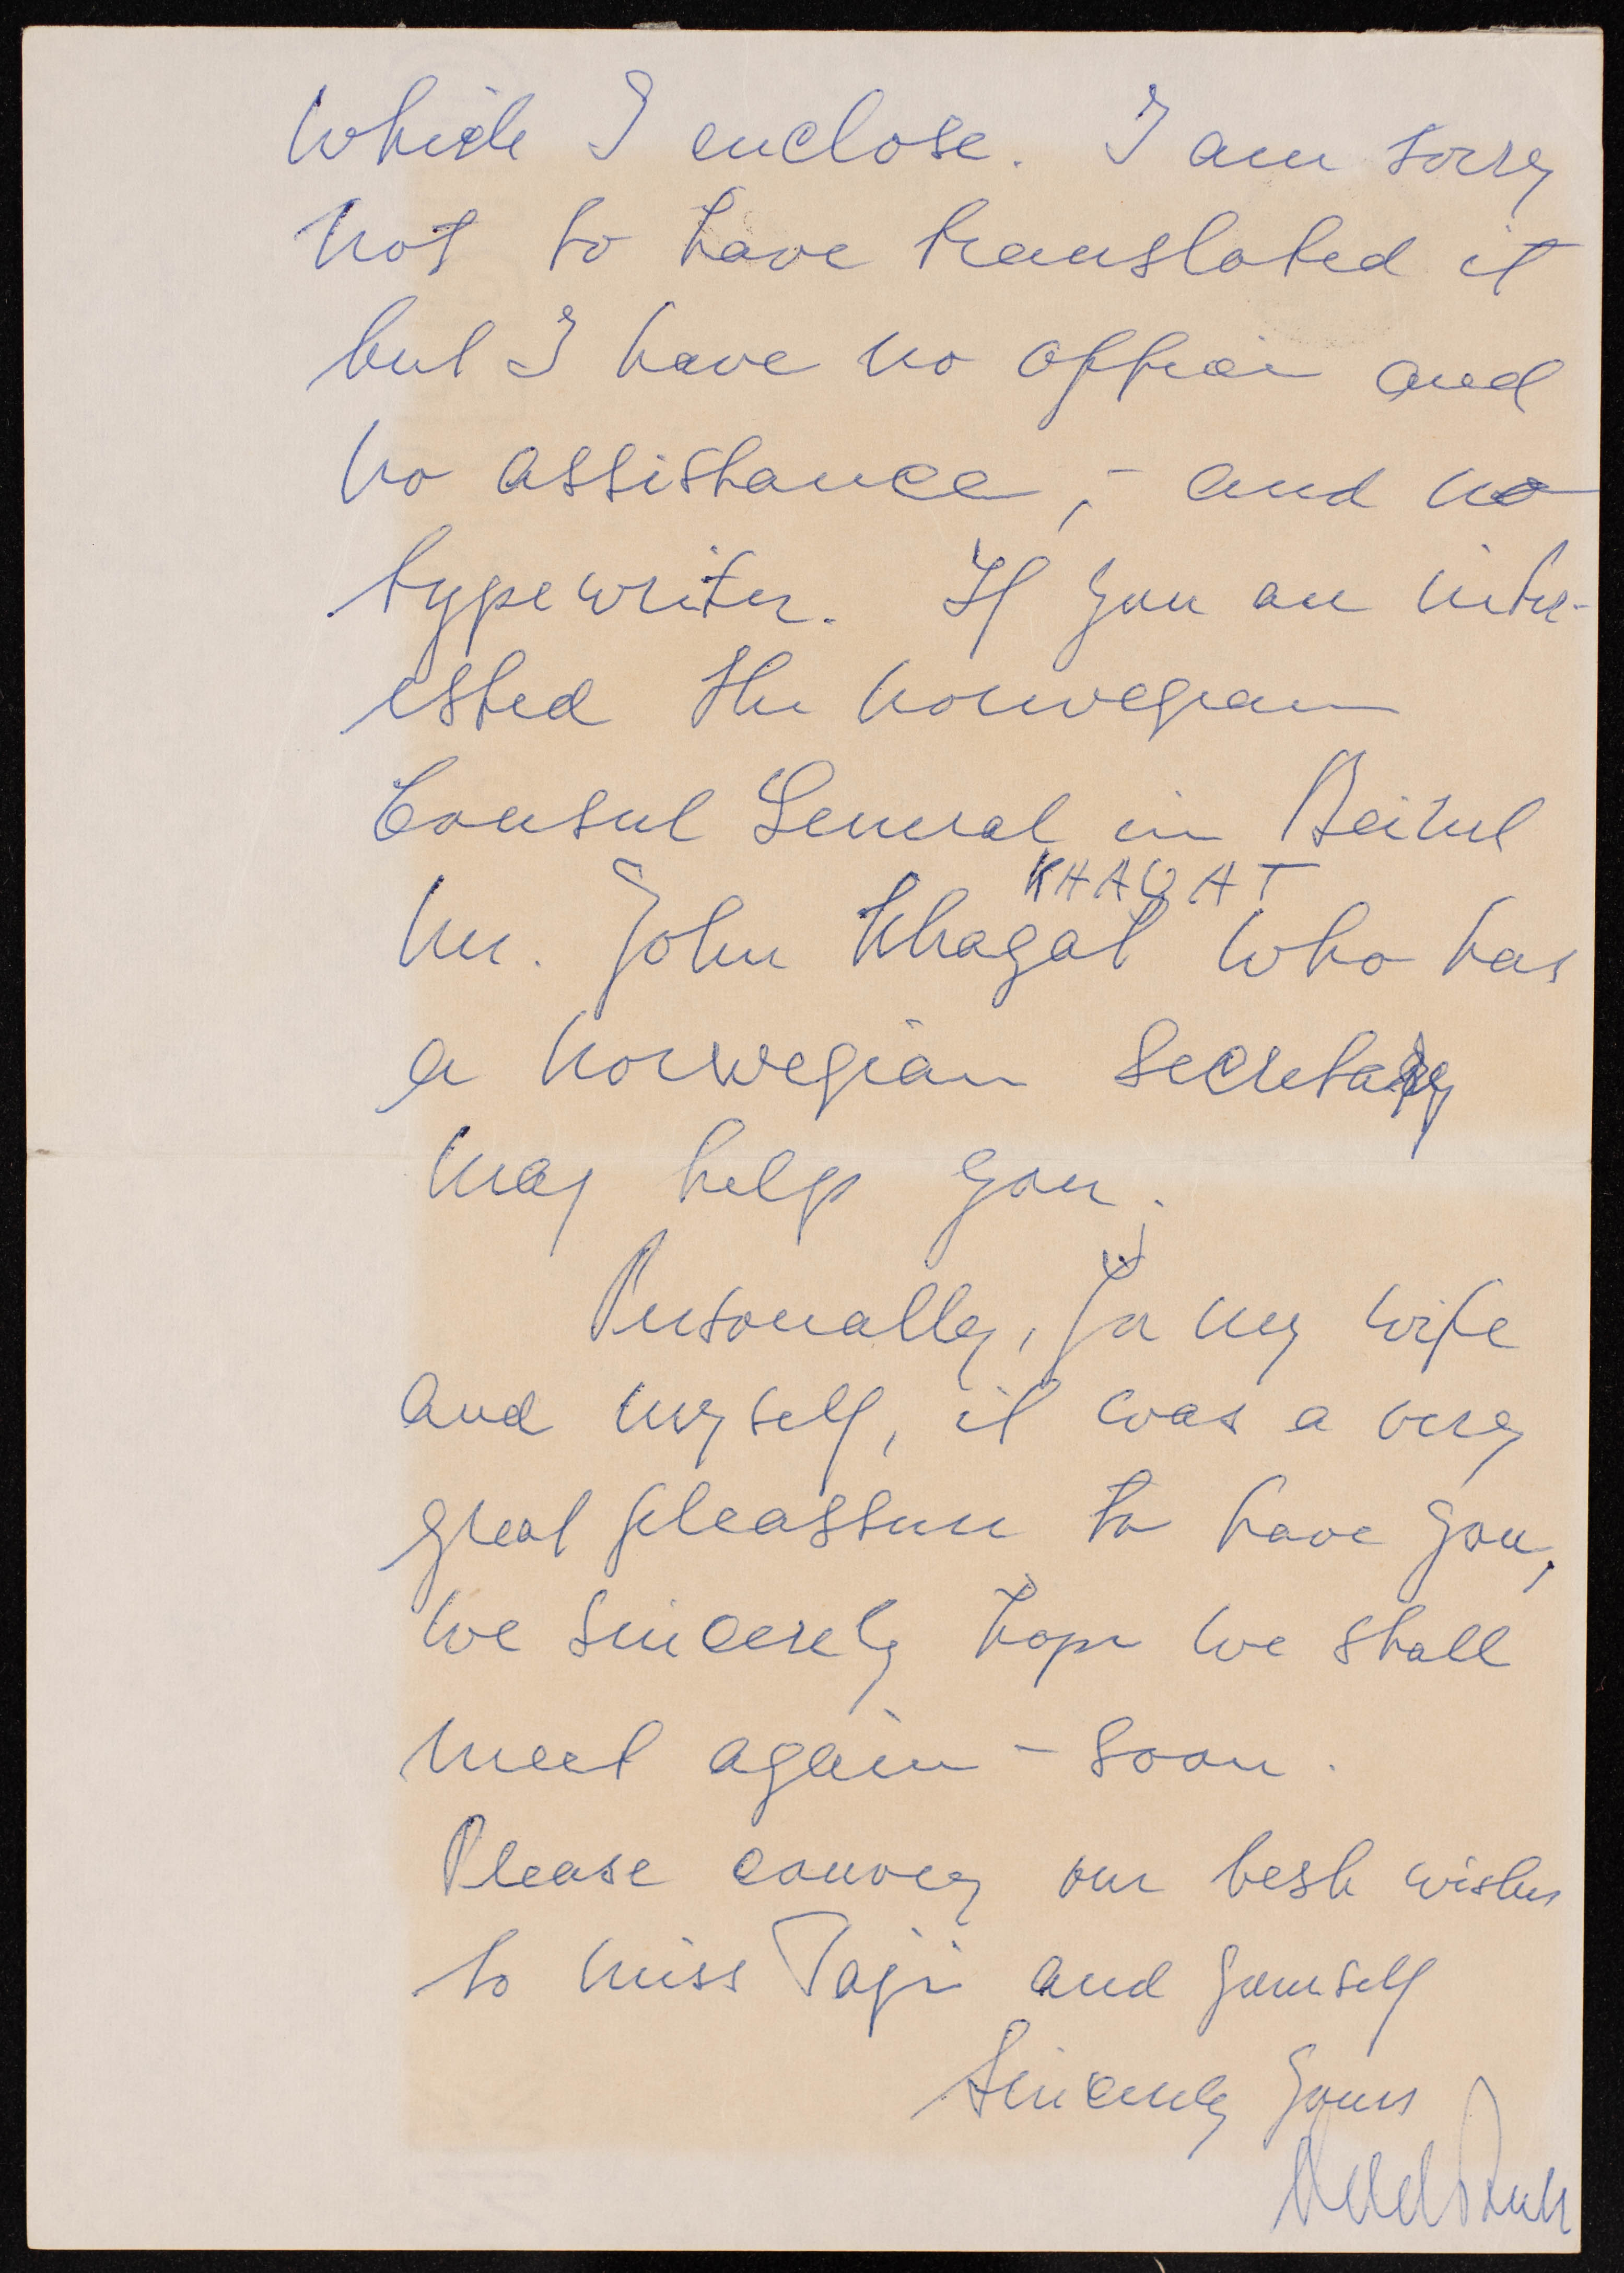 which I enclose. I am sorry
not to have translated it
but I have no office and
no assistance, - and no
typewriter. If you are inter-
ested the Norwegian
Consul General in Beirut
KHAYAT
Mr. John Khayat who has
a Norwegian secretary
may help you.
Personally, for my wife
and myself, it was a very
great pleassure to have you,
we sincerely hope we shall
meet again - soon.
Please convey our best wishes
to miss Taji and yourself
Sincerely yours